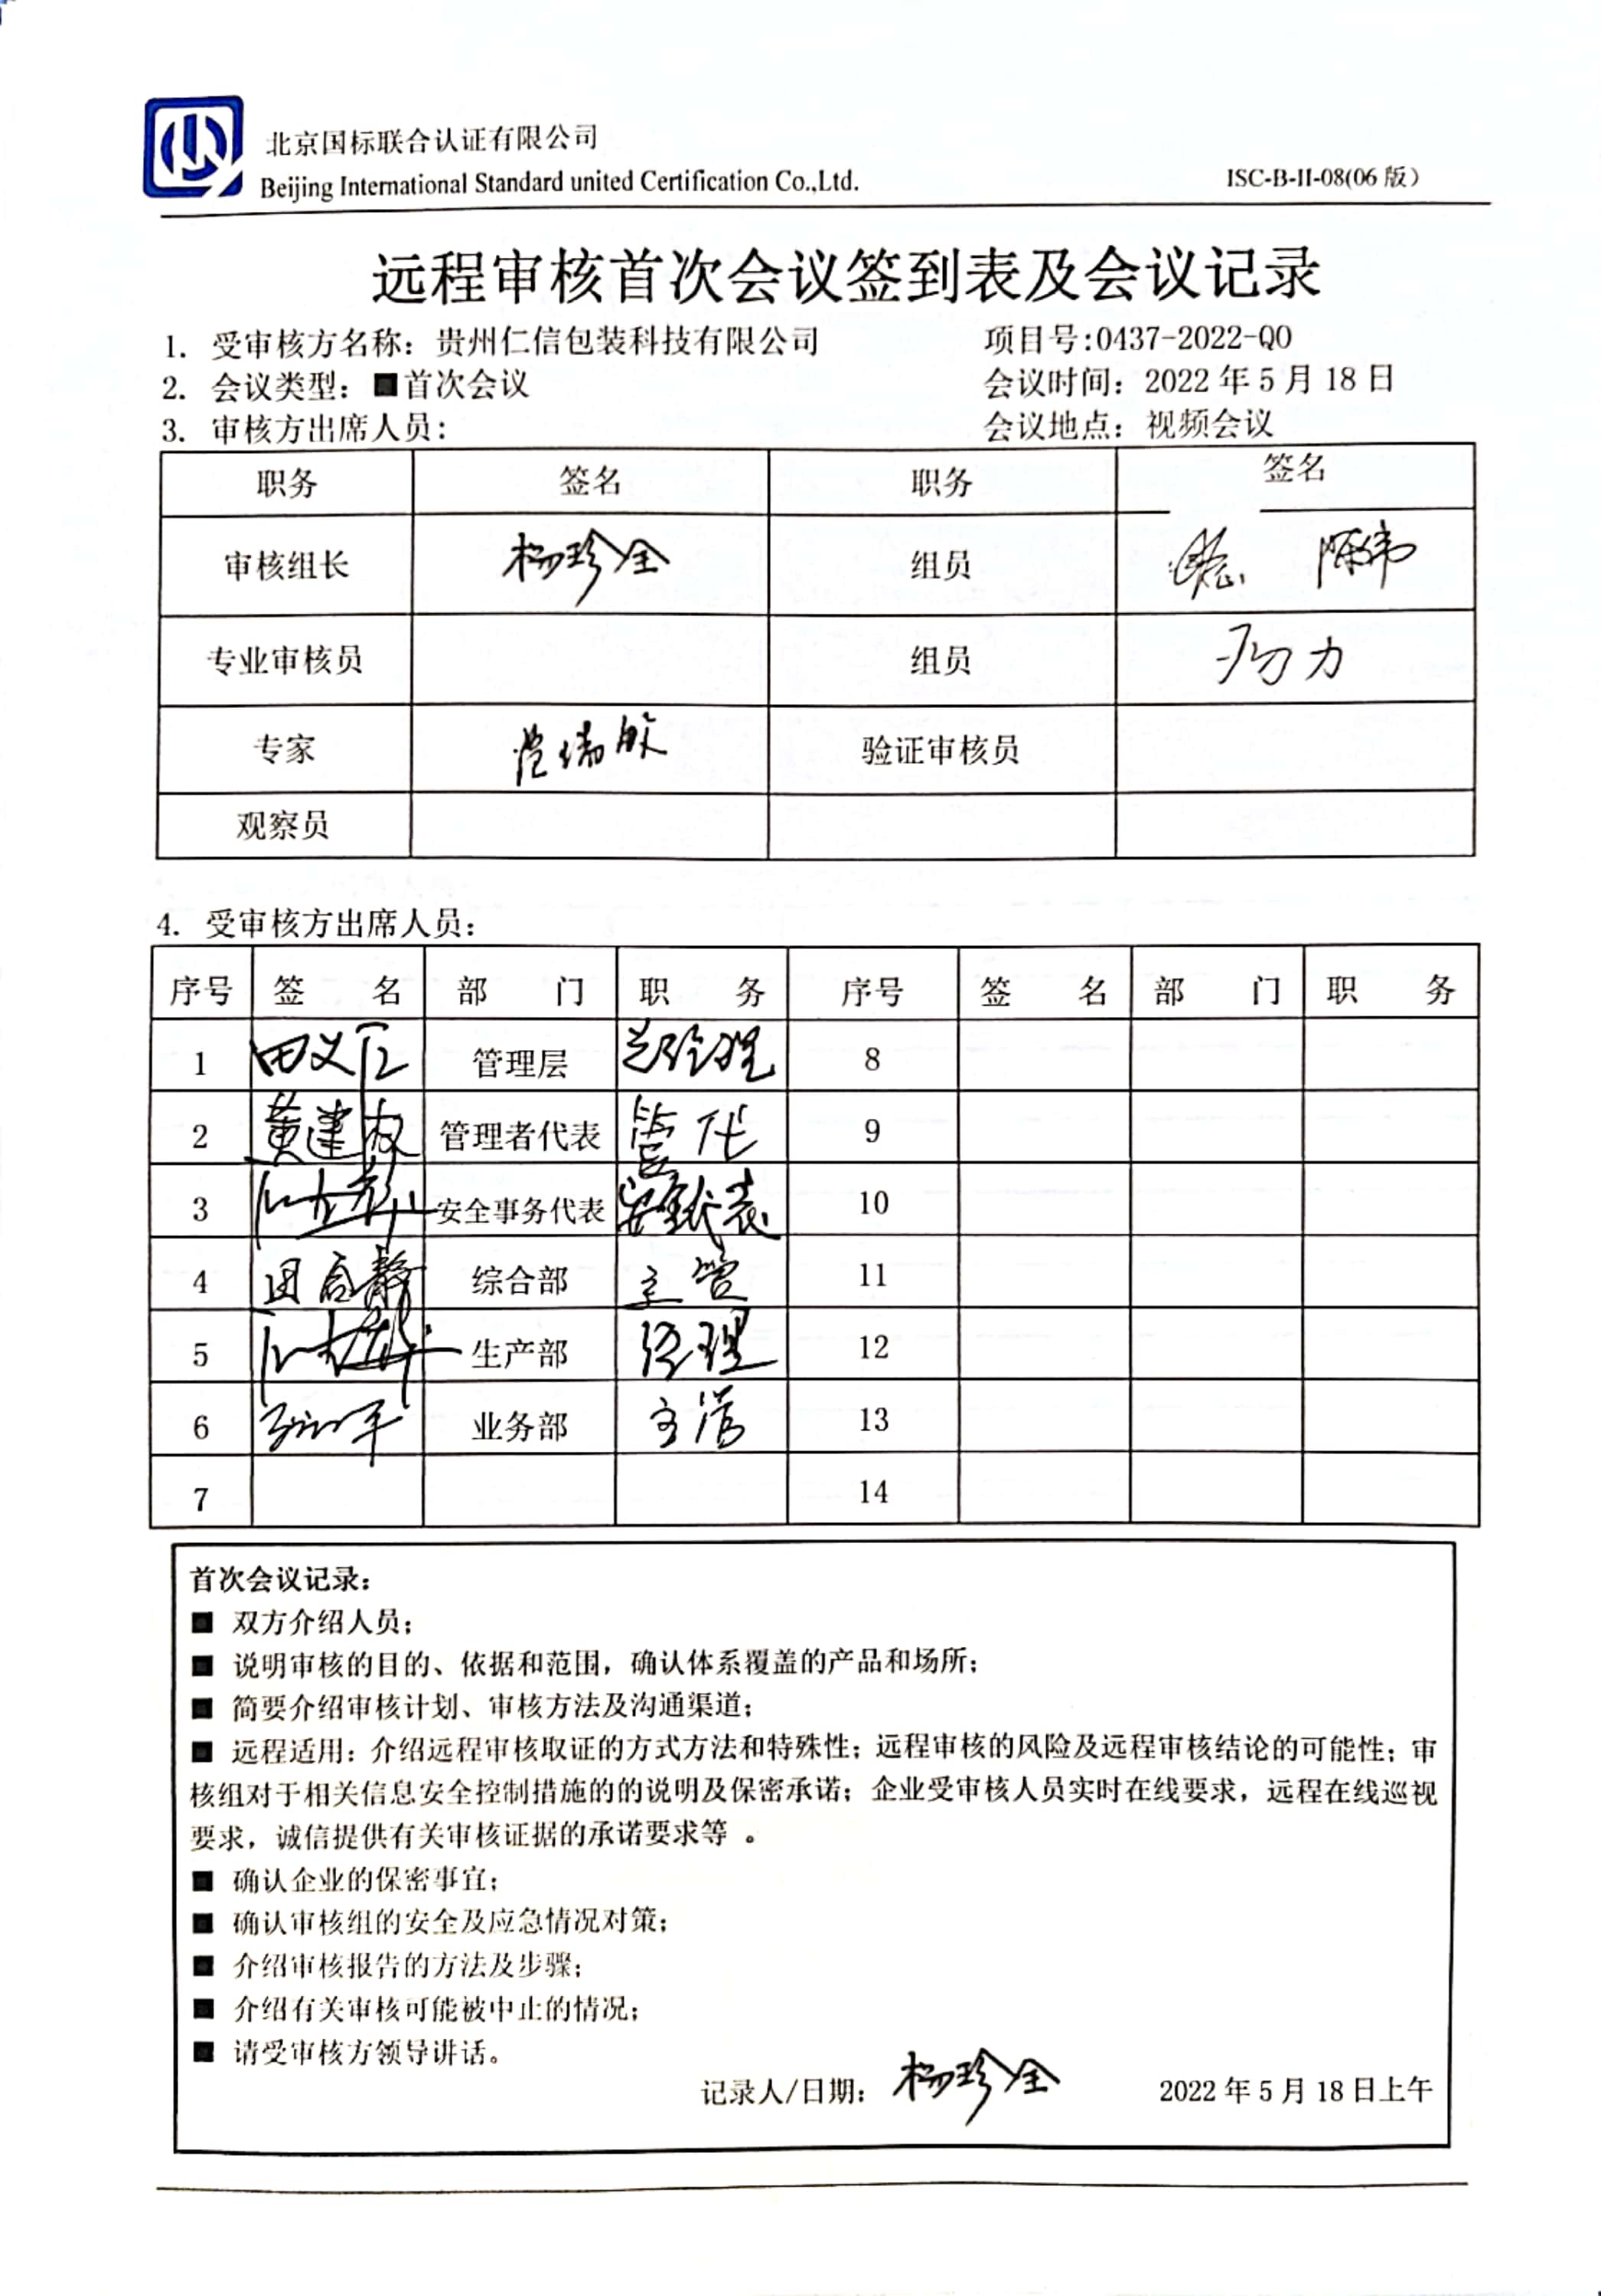 北京国标联合认证有限公司
Beijing International Standard united Certification Co.,Ltd.
ISC-B-II-08(06 版)
远程审核首次会议签到表及会议记录
1. 受审核方名称：贵州仁信包装科技有限公司 项目号:0437-2022-QO
2. 会议类型：■首次会议 会议时间：2022 年 5 月 18 日
3. 审核方出席人员： 会议地点：视频会议
职务 签名 职务 签名
审核组长 杨珍全 组员 陈伟
专业审核员 组员
专家 验证审核员
观察员
4. 受审核方出席人员：
序号 签 名 部 门 职 务 序号 签 名 部 门 职 务
1 田义仁 管理层 总经理 8
2 黄建友 管理者代表 管代 9
3 安全事务代表 安全代表 10
4 综合部 主管 11
5 生产部 经理 12
6 业务部 主管 13
7 14
首次会议记录：
■ 双方介绍人员；
■ 说明审核的目的、依据和范围，确认体系覆盖的产品和场所；
■ 简要介绍审核计划、审核方法及沟通渠道；
■ 远程适用：介绍远程审核取证的方式方法和特殊性；远程审核的风险及远程审核结论的可能性；审
核组对于相关信息安全控制措施的的说明及保密承诺；企业受审核人员实时在线要求，远程在线巡视
要求，诚信提供有关审核证据的承诺要求等 。
■ 确认企业的保密事宜；
■ 确认审核组的安全及应急情况对策；
■ 介绍审核报告的方法及步骤；
■ 介绍有关审核可能被中止的情况；
■ 请受审核方领导讲话。
记录人/日期： 杨珍全 2022 年 5 月 18 日上午